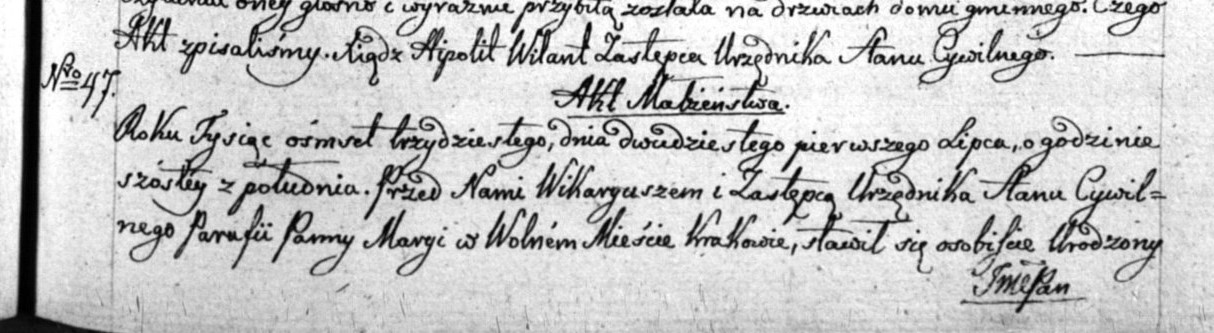 oney głośno i wyraźnie przybitą została na drzwiach domu gminnego. Czego
Akt spisaliśmy. Xiądz Hipolit Wilant Zastępca Urzędnika Stanu Cywilnego.
Nro 47.
Akt Małżeństwa.
Roku Tysiąc ośmset trzydziestego, dnia dwudziestego pierwszego Lipca, o godzinie
szóstey z południa. Przed Nami Wikaryuszem i Zastępcą Urzędnika Stanu Cywil=
nego Parafii Panny Maryi w Wolném Mieście Krakowie, stawił się osobiście Urodzony
JmćPan